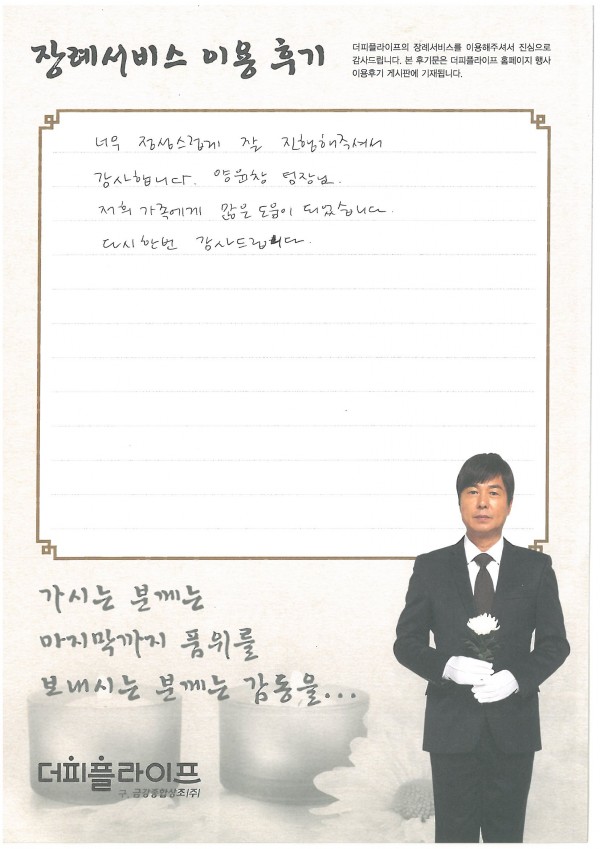 장례서비스 이용 후기
더피플라이프의 장례서비스를 이용해주셔서 진심으로
감사드립니다. 본 후기문은 더피플라이프 홈페이지 행사
이용후기 게시판에 기재됩니다.
너무 정성스럽게 잘 진행해주셔서
감사합니다. 양윤창 팀장님.
저희 가족에게 많은 도움이 되었습니다.
다시한번 감사드립니다.
가시는 분께는
마지막까지 품위를
보내시는 분께는 감동을...
더피플라이프
구. 금강종합상조(주)